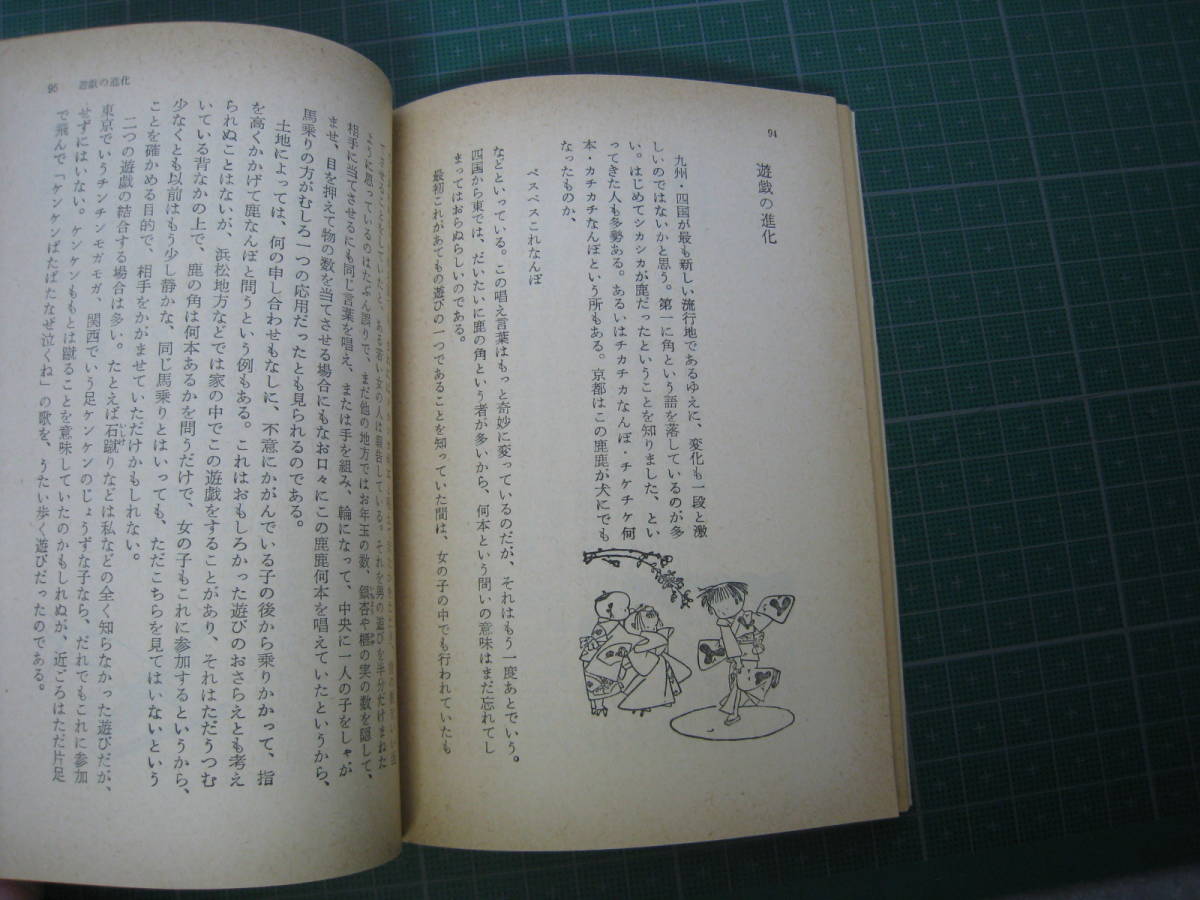 94
遊戯の進化
九州・四国が最も新しい流行地であるゆえに、変化も一段と激
しいのではないかと思う。第一に角という語を落しているのが多
い。はじめてシカシカが鹿だったということを知りました、とい
ってきた人も多勢ある。あるいはチカチカなんぼ・チケチケ何
本・カチカチなんぼという所もある。京都はこの鹿鹿が犬にでも
なったものか、
ベスベスこれなんぼ
などといっている。この唱え言葉はもっと奇妙に変っているのだが、それはもう一度あとでいう。
四国から東では、だいたいに鹿の角という者が多いから、何本という問いの意味はまだ忘れてし
まってはおらぬらしいのである。
最初これがあてもの遊びの一つであることを知っていた間は、女の子の中でも行われていたも
95 遊戯の進化
ように思っているのはたぶん誤りで、まだ他の地方ではお年玉の数、銀杏や榧の実の数を隠して、
相手に当てさせるにも同じ言葉を唱え、または手を組み、輪になって、中央に一人の子をしゃが
ませ、目を押えて物の数を当てさせる場合にもなお口々にこの鹿鹿何本を唱えていたというから、
馬乗りの方がむしろ一つの応用だったとも見られるのである。
土地によっては、何の申し合わせもなしに、不意にかがんでいる子の後から乗りかかって、指
を高くかかげて鹿なんぼと問うという例もある。これはおもしろかった遊びのおさらえとも考え
られぬことはないが、浜松地方などでは家の中でこの遊戯をすることがあり、それはただうつむ
いている背なかの上で、鹿の角は何本あるかを問うだけで、女の子もこれに参加するというから、
少なくとも以前はもう少し静かな、同じ馬乗りとはいっても、ただこちらを見てはいないという
ことを確かめる目的で、相手をかがませていただけかもしれない。
二つの遊戯の結合する場合は多い。たとえば石蹴りなどは私などの全く知らなかった遊びだが、
東京でいうチンチンモガモガ、関西でいう足ケンケンのじょうずな子なら、だれでもこれに参加
せずにはいない。ケンケンももとは蹴ることを意味していたのかもしれぬが、近ごろはただ片足
で飛んで「ケンケンぱたぱたなぜ泣くね」の歌を、うたい歩く遊びだったのである。